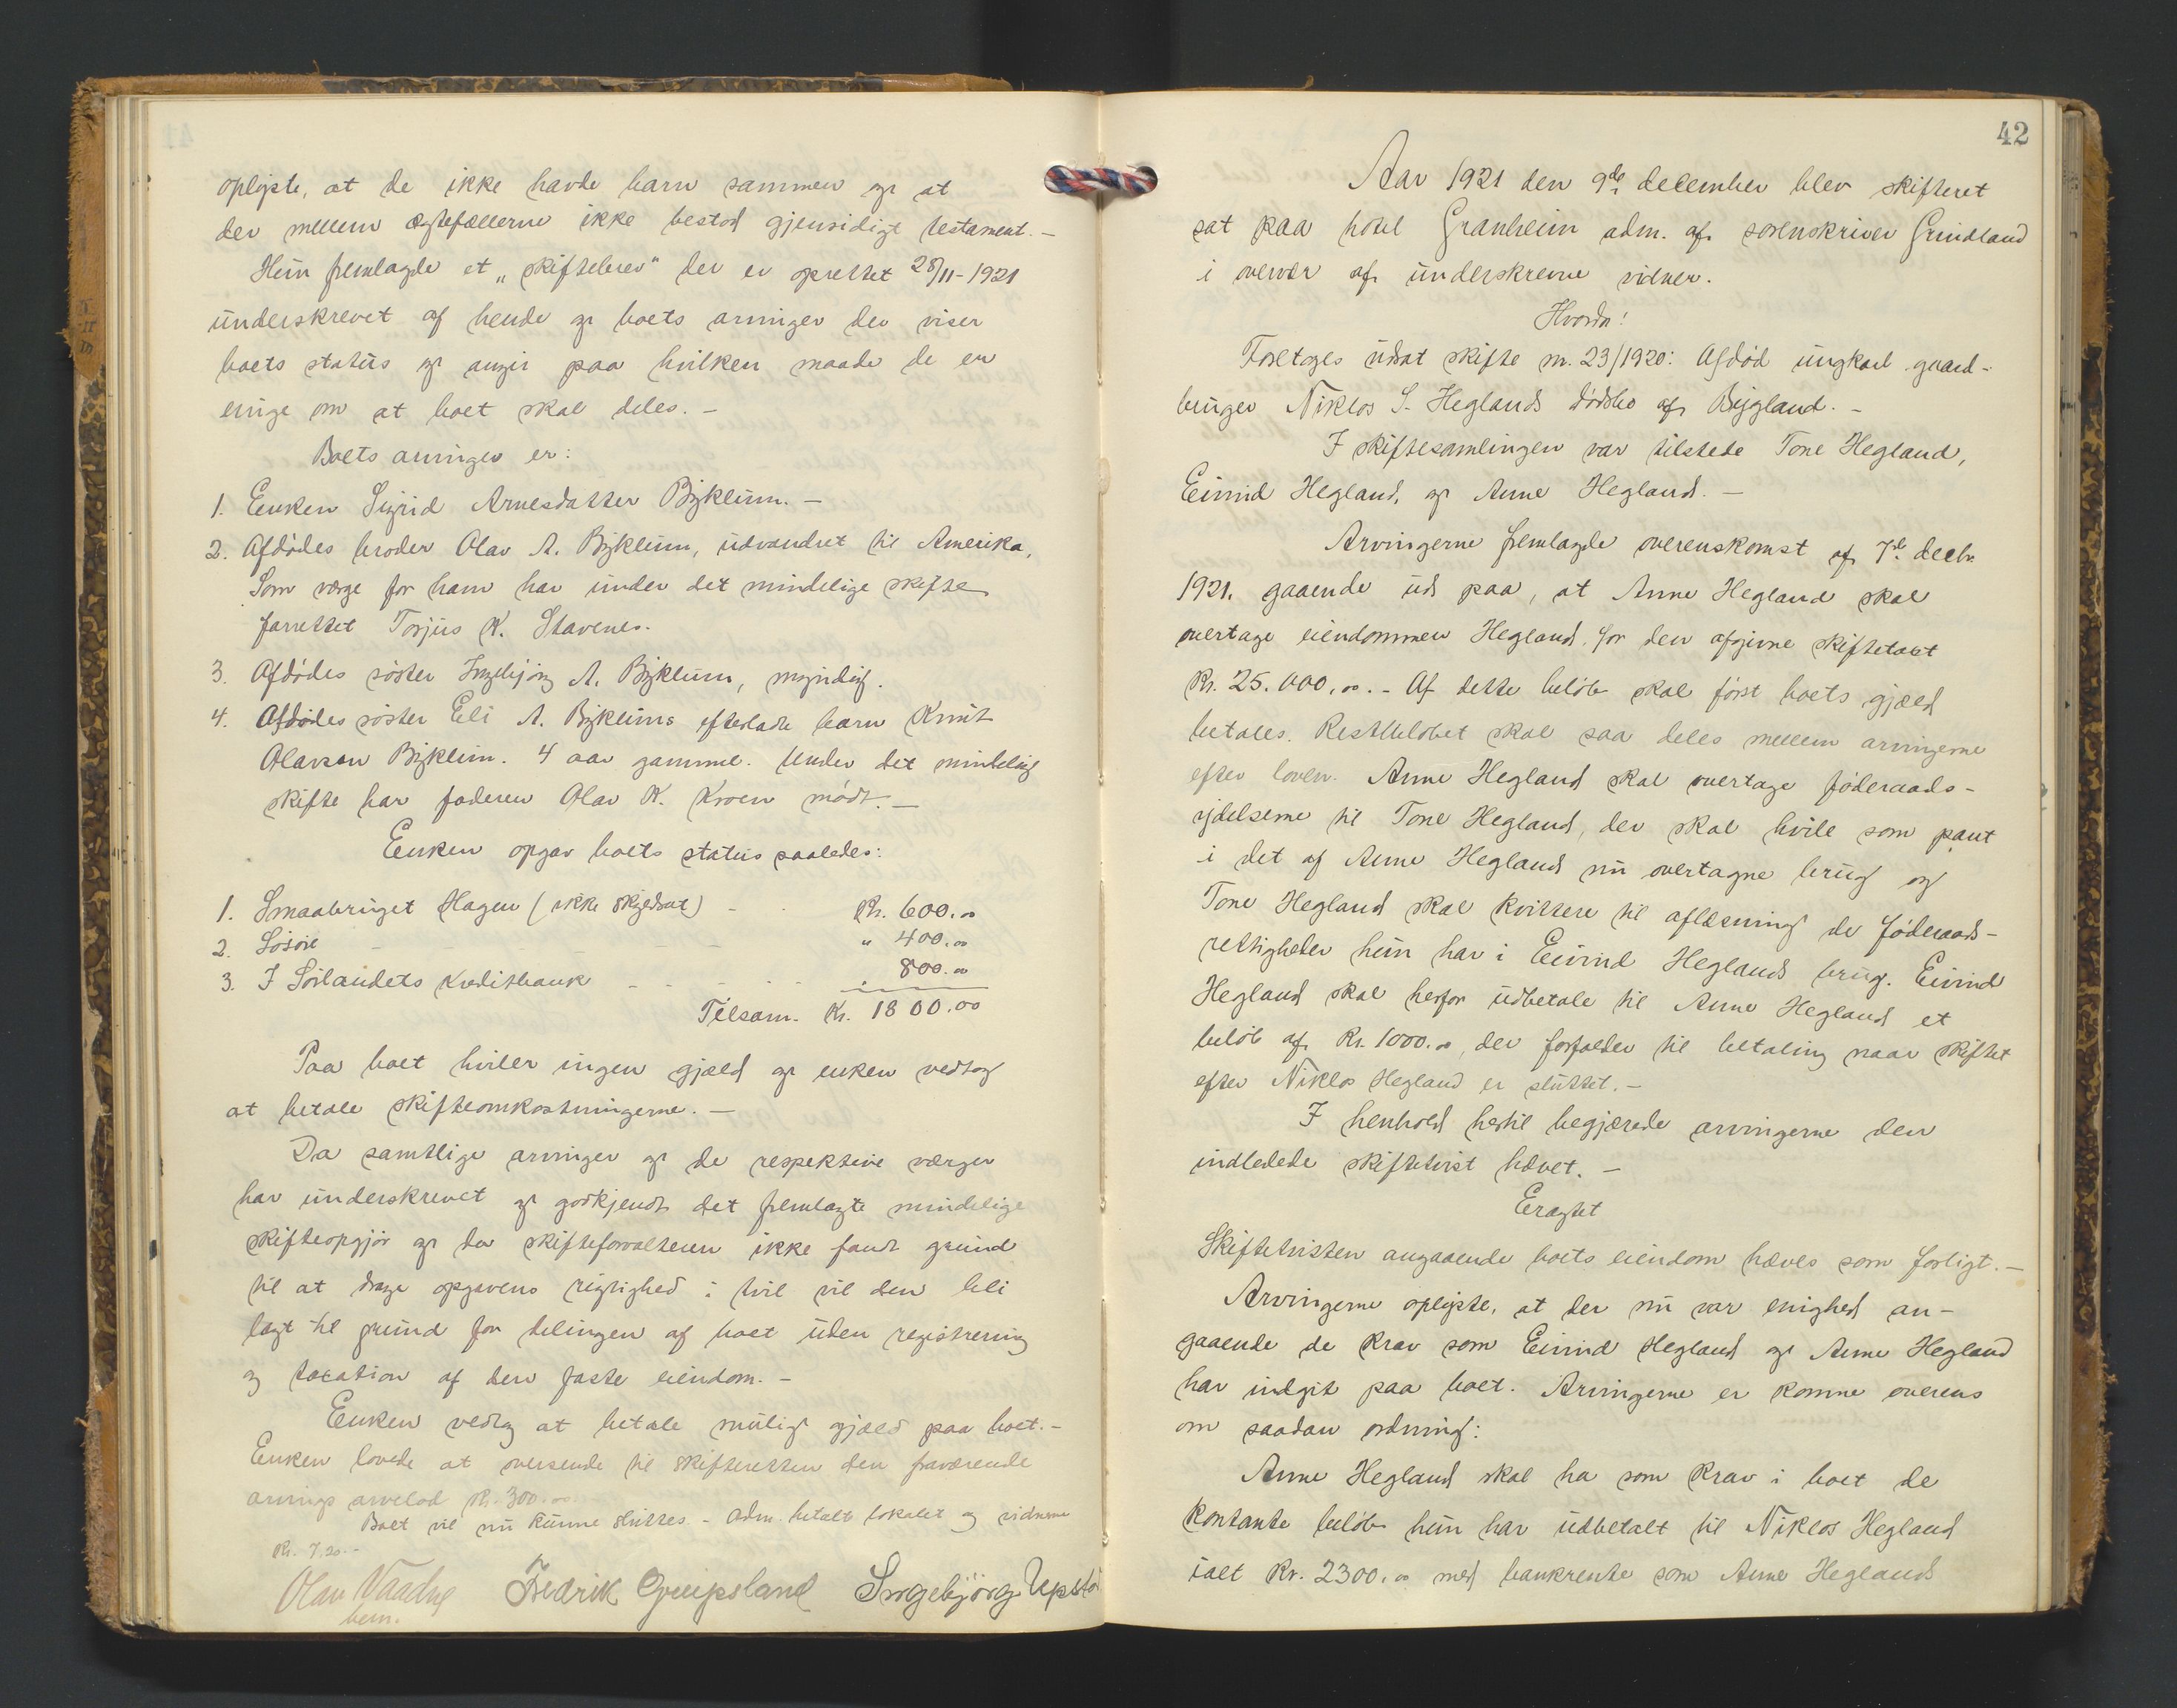 oplyste, at de ikke havde barn sammen og at
der mellem ægtefællerne ikke bestod gjensidigt testament. -
Hun fremlagde et „skiftebrev" der er oprettet 28/11-1921
underskrevet af hende og boets arvinger der viser
boets status og angir paa hvilken maade de er
enige om at boet skal deles. -
Boets arvinger er:
1. Enken Sigrid Arnesdatter Bykleum. -
2. Afdödes broder Olav A. Bykleum, udvandret til Amerika,
Som værge for ham har under det mindelige skifte
forrettet Torjus K. Stavenes.
3. Afdödes söster Ingebjörg A. Bykleum, myndig.
4. Afdödes söster Eli A. Bykleums efterladte barn Knut
Olavson Bykleum. 4 aar gammel. Under det mindelig
skifte har faderen Olav K. Kroen mödt. -
Enken opgav boets status saaledes:
1. Smaabruget Hagen (ikke skyldsat) - - Kr. 600.00
2. Lösöre - - - - - " 400.00
3. I Sörlandets Kreditbank - - - - - 800.00
Tilsam. Kr. 1800.00
Paa boet hviler ingen gjæld og enken vedtog
at betale skifteomkostningerne. -
Da samtlige arvinger og de respektive værger
har underskrevet og godkjendt det fremlagte mindelige
skifteopgjör og da skifteforvalteren ikke fandt grund
til at drage opgavens rigtighed i tvil vil den bli
lagt til grund for delingen af boet uden registrering
og taxation af den faste eiendom. -
Enken vedtog at betale mulig gjæld paa boet. -
Enken lovede at oversende til skifteretten den fraværende
arvings arvelod Kr. 300.00
Boet vil nu kunne sluttes. - Adm. betalte lokalet og vidnerne
Kr. 7,20. -
Olav Vaadne Fredrik Greipsland Ingebjörg Upstö
42
Aar 1921 den 9de december blev skifteret
sat paa hotel Granheim adm. af sorenskriver Grindland
i overvær af underskrevne vidner.
Hvorda!
Foretoges udsat skifte nr. 23/1920: Afdöd ungkarl gaard-
bruger Niklos S. Heglands dödsbo af Bygland. -
I skiftesamlingen var tilstede Tone Hegland,
Eivind Hegland, og Anne Hegland. -
Arvingerne fremlagde overenskomst af 7de decbr
1921. gaaende ud paa, at Anne Hegland skal
overtage eiendommen Hegland for den afgivne skiftetakst
Kr. 25.000,00. - Af dette belöb skal först boets gjæld
betales. Restbelöbet skal saa deles mellem arvingerne
efter loven. Anne Hegland skal overtage föderaads-
ydelserne til Tone Hegland, der skal hvile som pant
i det af Anne Hegland nu overtagne brug og
Tone Hegland skal kvittere til aflæsning de föderaads-
rettigheder hun har i Eivind Heglands brug. Eivind
Hegland skal herfor udbetale til Anne Hegland et
belöb af Kr. 1000.00, der forfalder til betaling naar skiftet
efter Niklos Hegland er sluttet. -
I henhold hertil begjærede arvingerne den
indledede skiftetvist hævet. -
Eragtet
Skiftetvisten angaaende boets eiendom hæves som forligt. -
Arvingerne oplyste, at der nu var enighed an-
gaaende de krav som Eivind Hegland og Anne Hegland
har indgit paa boet. Arvingerne er komne overens
om saadan ordning:
Anne Hegland skal ha som krav i boet de
kontante belöb hun har udbetalt til Niklos Hegland
ialt Kr. 2300.00 med bankrente som Anne Hegland